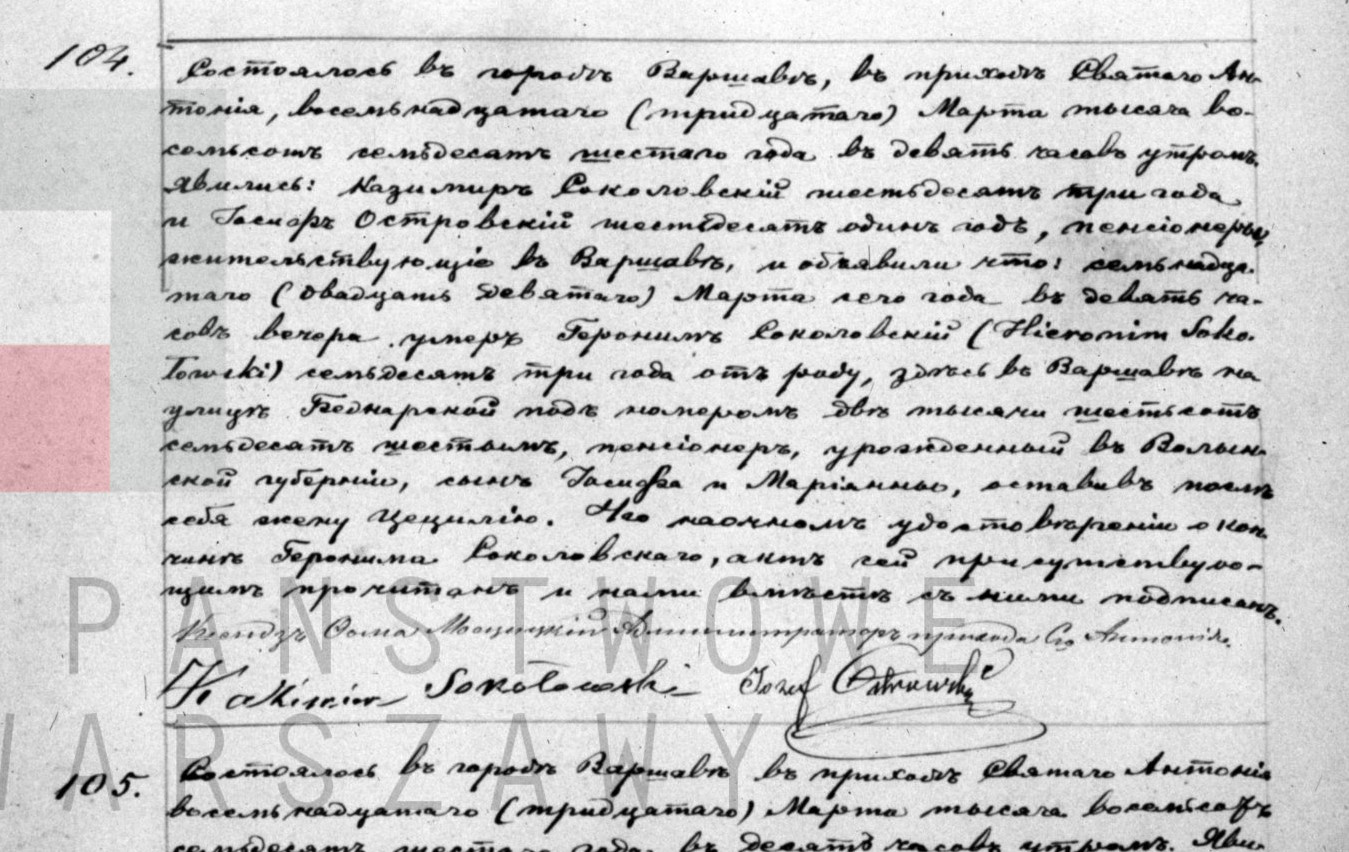 104.
Состоялось въ городѣ Варшавѣ, въ приходѣ Святаго Ан-
тонія, восемьнадцатаго (тридцатаго) Марта тысяча во-
семьсотъ семьдесятъ шестаго года въ девять часовъ утромъ.
Явились: Казимиръ Соколовскій шестьдесятъ три года
и Іосифъ Островскій шестьдесятъ одинъ годъ, пенсіонеры,
жительствующіе въ Варшавѣ, и объявили что: семьнадца-
таго (двадцать девятаго) Марта сего года въ девять ча-
совъ вечера умеръ Геронимъ Соколовскій (Hieronim Soko-
łowski) семьдесятъ три года отъ роду, здѣсь въ Варшавѣ на
улицѣ Беднарской подъ номеромъ двѣ тысячи шестьсотъ
семьдесятъ шестымъ, пенсіонеръ, урожденный въ Волын-
ской губерніи, сынъ Іосифа и Маріанны, оставивъ послѣ
себя жену Цецилію. По наочномъ удостовѣреніи о кон-
чинѣ Геронима Соколовскаго, актъ сей присутствую-
щимъ прочитанъ и нами вмѣстѣ съ ними подписанъ.
Ксендзъ Ѳома Администраторъ прихода Св. Антонія.
Kazimierz Sokołowski Józef Ostrowski
105.
Состоялось въ городѣ Варшавѣ въ приходѣ Святаго Антонія
восемьнадцатаго (тридцатаго) Марта тысяча восемьсотъ
семьдесятъ шестаго года въ десять часовъ утромъ. Яви-
PAŃSTWOWE
WARSZAWY